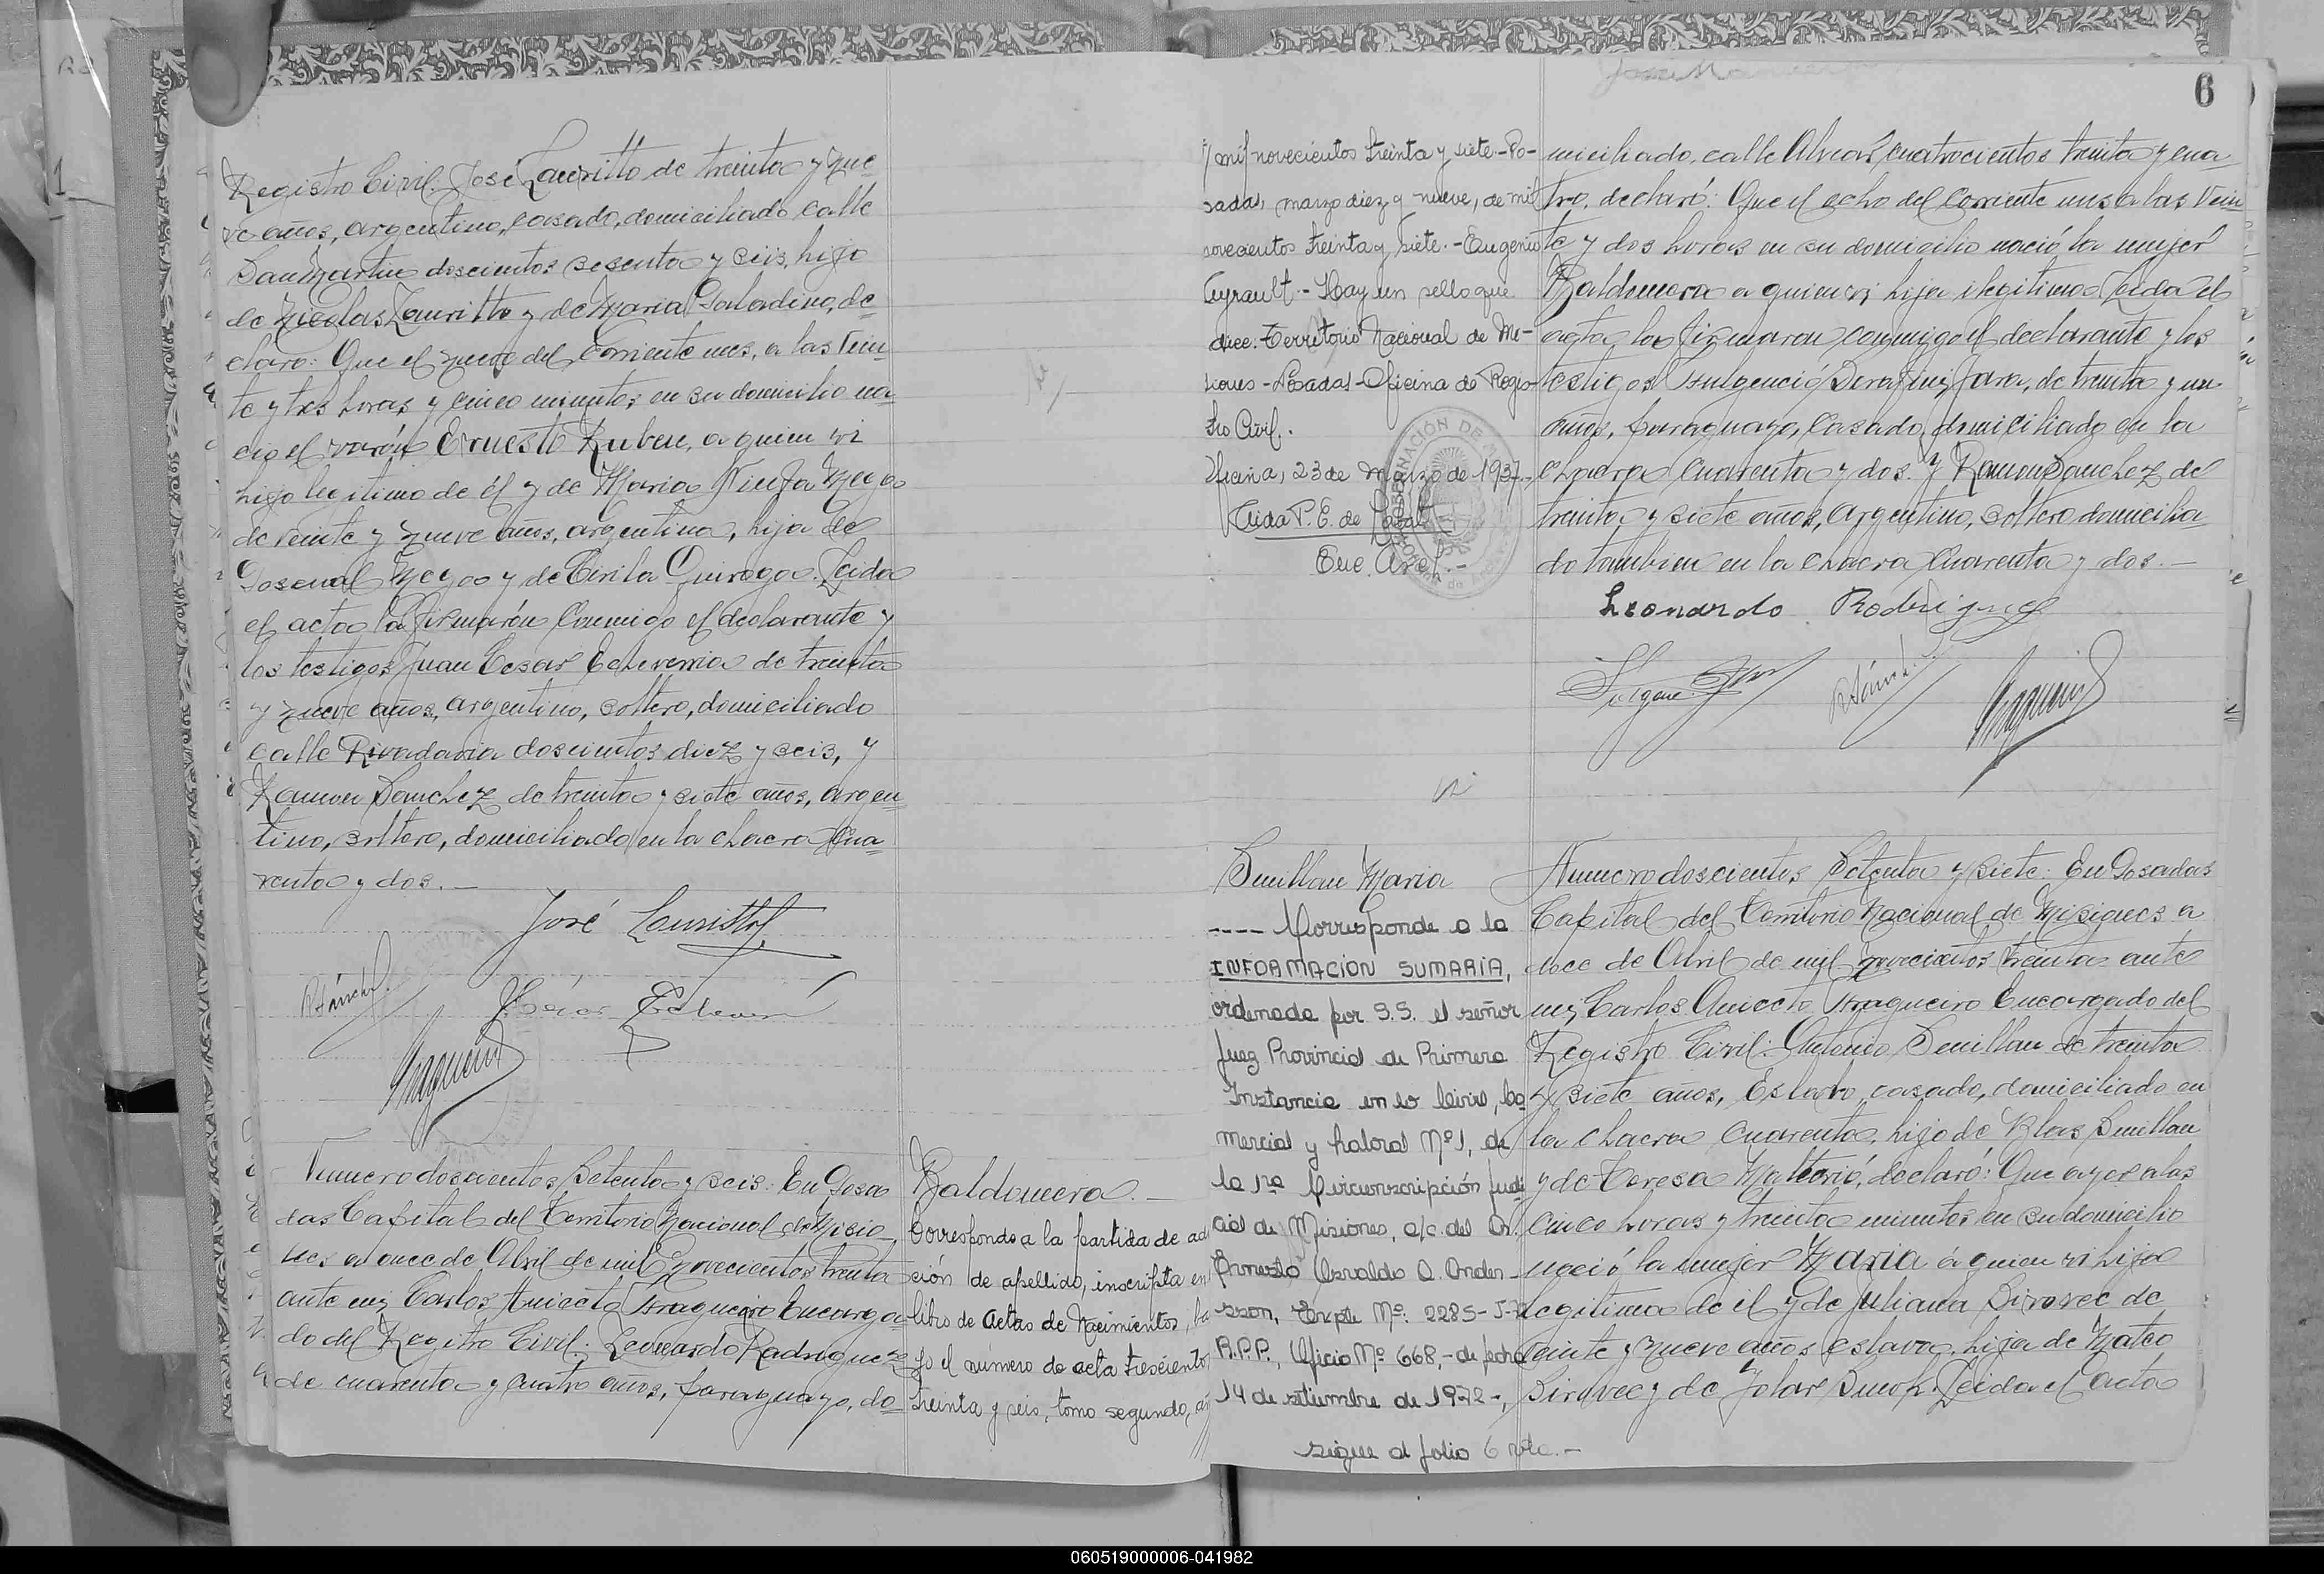 Registro Civil. José Lauritto de treinta y nue
ve años, argentino, casado, domiciliado calle
San Martin doscientos sesenta y seis, hijo
de Nicolas Lauritto y de Maria Galadino, de
claro: Que el nueve del corriente mes, a las vein
te y tres horas y cinco minutos en su domicilio na
cio el varón Ernesto Ruben, a quien vi
hijo legitimo de él y de Maria Meza
de veinte y nueve años, argentina, hija de
Pascual Meza y de Cirila Quiroga. Leida
el acta la firmarón conmigo el declarante y
los testigos Juan Cesar Echeverria de treinta
y nueve años, argentino, soltero, domiciliado
calle Rivadavia doscientos diez y seis, y
Ramon Sanchez de treinta y siete años, argen
tino, soltero, domiciliado en la chacra cua
renta y dos.—
José Lauritto
RSánchez
César Echeverria
Numero doscientos setenta y seis: En Posa
das Capital del Territorio Nacional de Misio
nes a once de Abril de mil novecientos treinta
ante mi, Carlos Aniecto Fragueiro Encarga
do del Registro Civil: Leonardo Rodriguez
de cuarenta y cuatro años, paraguayo, do
Baldomera.—
Corresponde a la partida de adi
ción de apellido, inscripta en
libro de Actas de Nacimientos, ba
jo el número de acta trescientos
treinta y seis, tomo segundo, añ
6
y mil novecientos treinta y siete.-Po-
sadas, marzo diez y nueve, de mil
novecientos treinta y siete.-Eugenio
Hay un sello que
dice.-Territorio Nacional de Mi-
siones-Posadas-Oficina de Regis-
tro Civil.
Oficina, 23 de Marzo de 1937.-
Aida P. E. de
Enc. Acc.-
miciliado, calle Alvear, cuatrocientos treinta y cua
tro, declaró: Que el ocho del corriente mes a las vein
te y dos horas en su domicilio nació la mujer
Baldomera a quien vi, hija ilegitima. Leida el
acta la firmaron conmigo el declarante y los
testigos Fulgencio Serafin Jara, de treinta y un
años, paraguayo, casado, domiciliado en la
chacra cuarenta y dos. y Ramon Sanchez de
treinta y siete años, argentino, soltero domicilia
do tambien en la chacra cuarenta y dos.—
Leonardo Rodriguez
RSánchez
Smillan Maria
---- Corresponde a la
INFORMACION SUMARIA,
ordenada por S.S. el señor
Juez Provincial de Primera
Instancia en lo Civil, Co
mercial y Laboral Nº1, de
la 1ra Circunscripción Judi
cial de Misiones, a/c. del Dr.
Ernesto Osvaldo O. Ander
sson, Expte Nº: 2285-J-72
R.P.P., Oficio Nº 668,-de fecha
14 de setiembre de 1972-,
sigue al folio 6 vta.-
Numero doscientos setenta y siete: En Posadas
Capital del Territorio Nacional de Misiones a
doce de Abril de mil novecientos treinta ante
mi, Carlos Aniecto Fragueiro Encargado del
Registro Civil: Antonio Smillan de treinta
y siete años, Eslavo, casado, domiciliado en
la chacra cuarenta, hijo de Blas Smillan
y de Teresa declaró: Que ayer a las
cinco horas y treinta minutos en su domicilio
nació la mujer Maria á quien vi hija
legitima de él y de Juliana Sirovec de
veinte y nueve años eslava, hija de Mateo
Sirovec y de Leida el acta
060519000006-041982